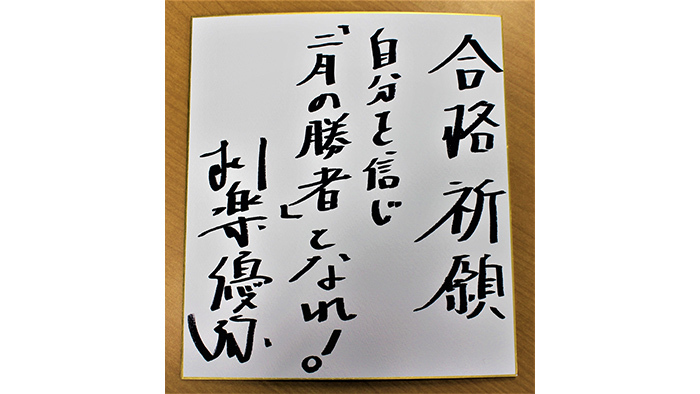 合格祈願
自分を信じ
「二月の勝者」となれ!
楽優